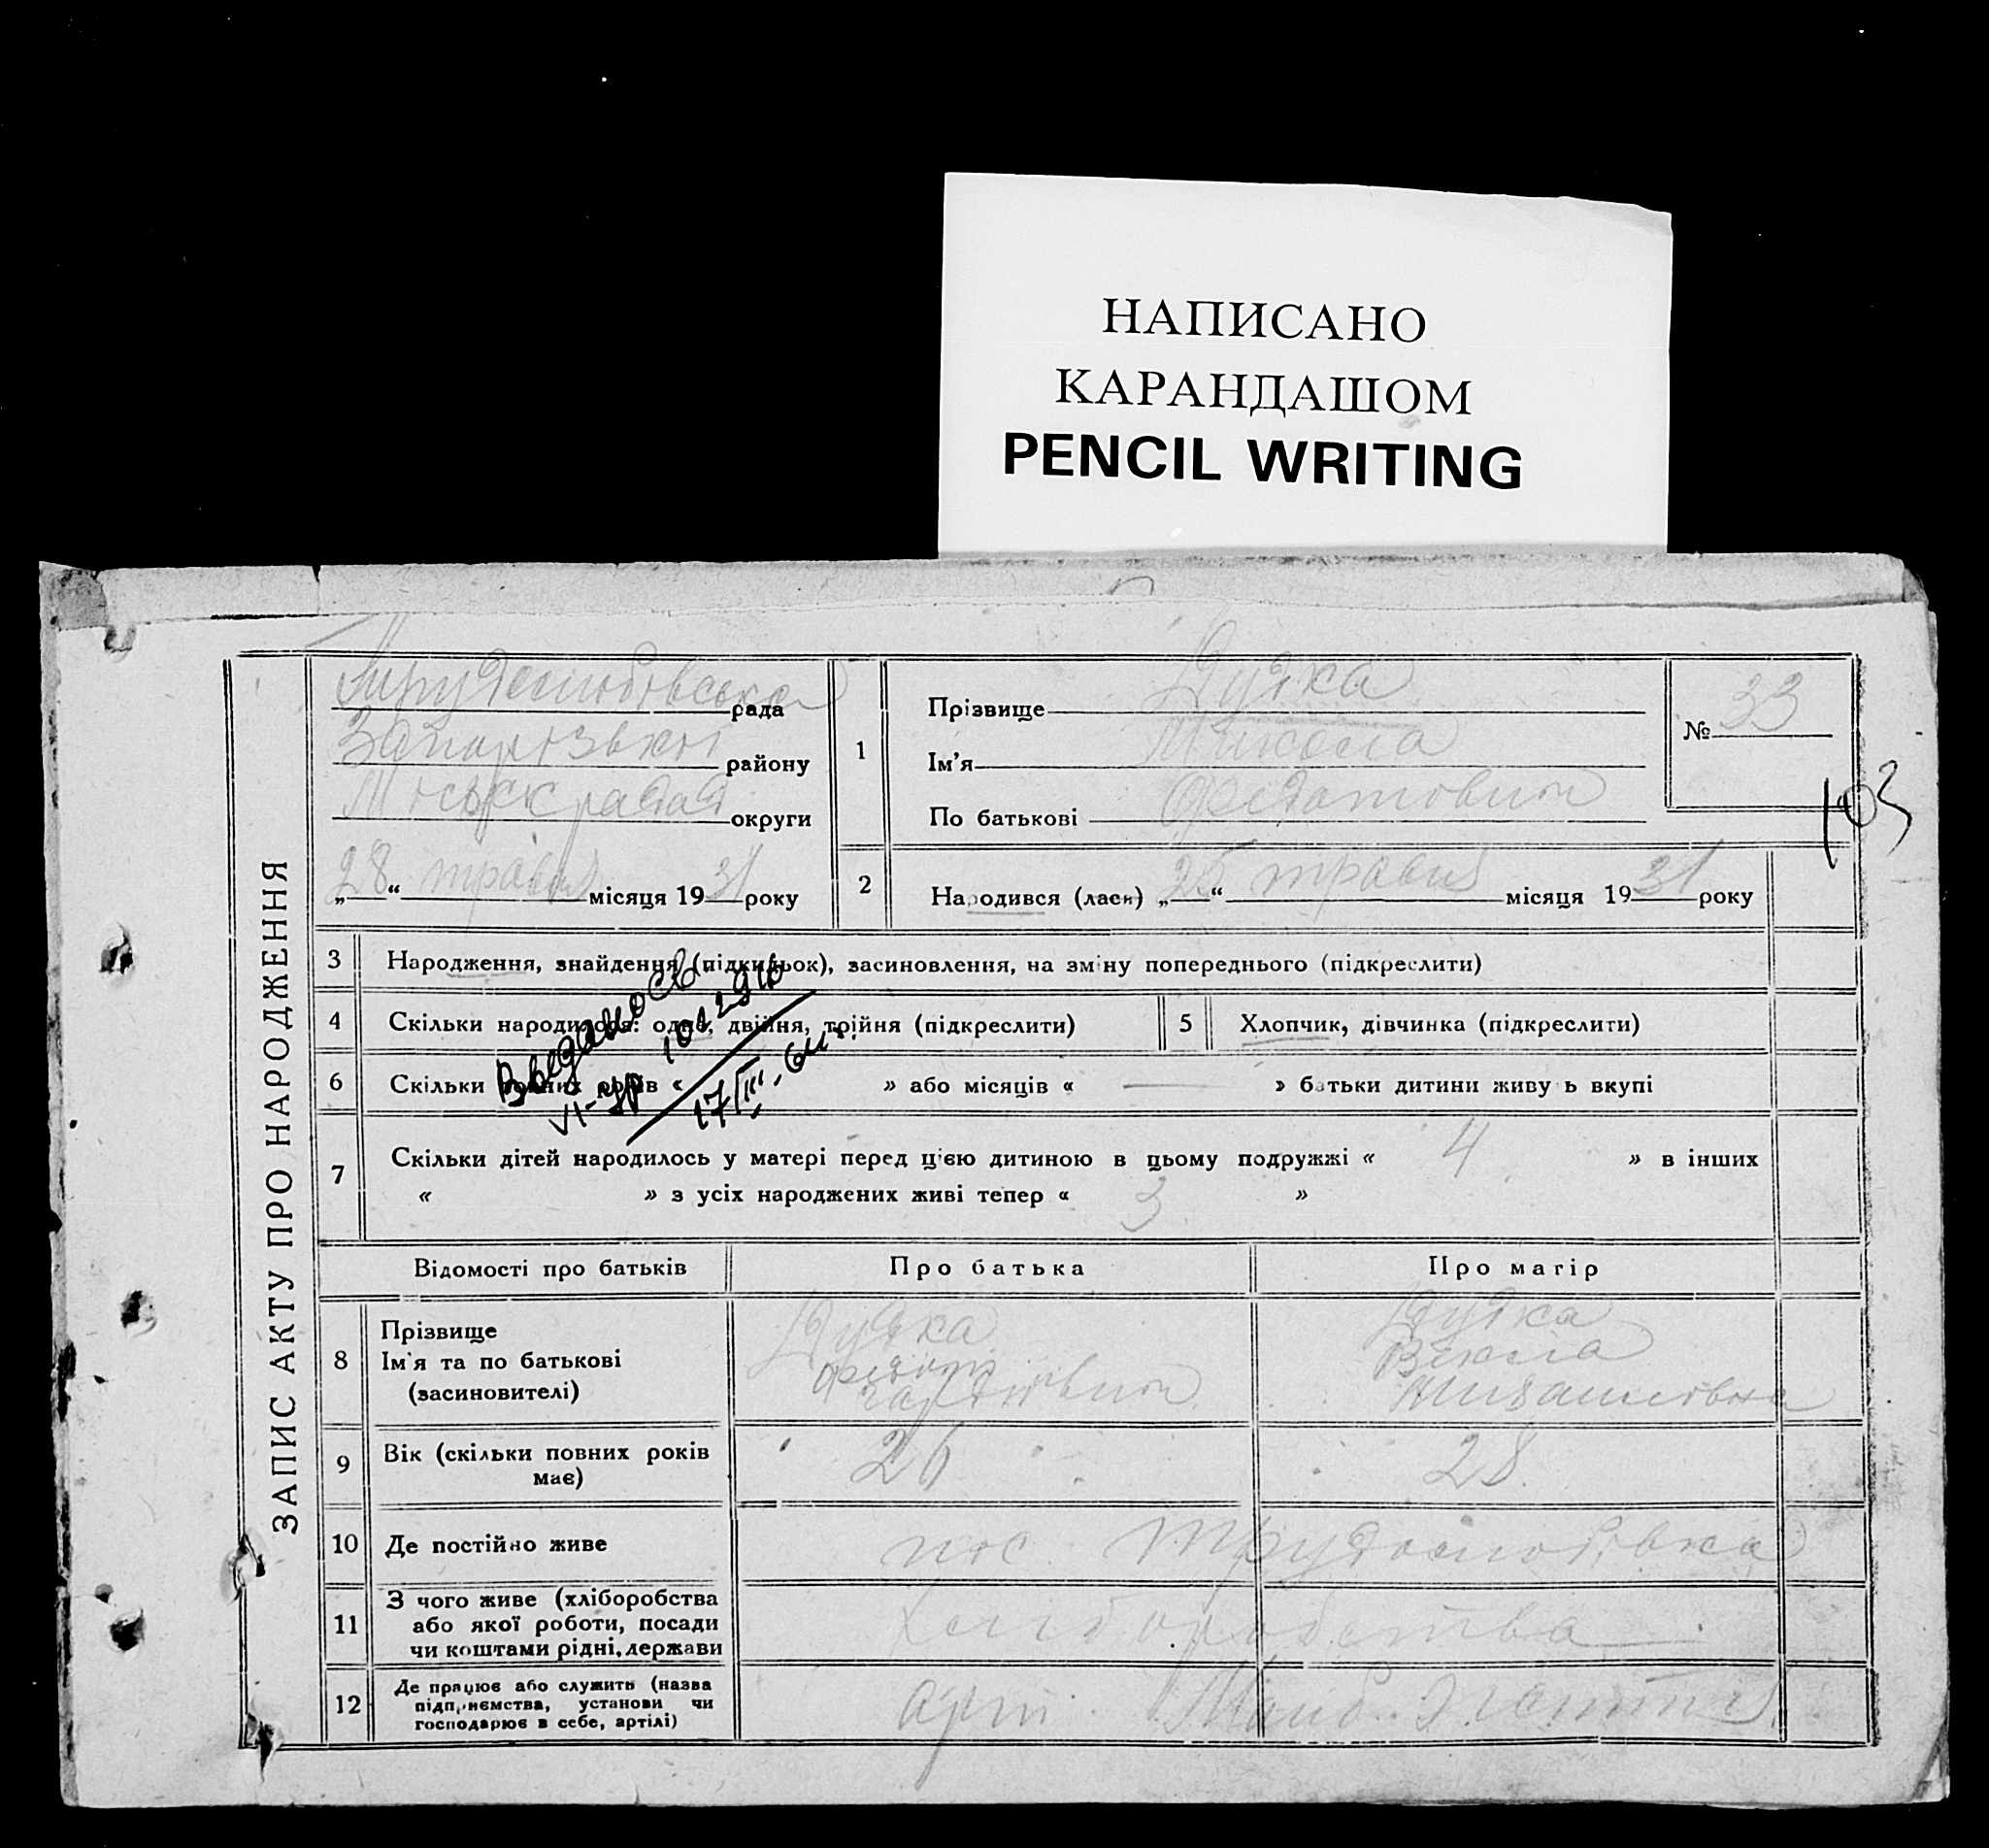 НАПИСАНО
КАРАНДАШОМ
PENCIL WRITING
ЗАПИС АКТУ ПРО НАРОДЖЕННЯ
рада
району
округи
„28“ травня місяця 1931 року
1
Прізвище Дудка
Ім'я Микола
По батькові Федотович
№ 33
103
2
Народився (лася) „25“ травня місяця 1931 року
3 Народження, знайдення (підкидьок), засиновлення, на зміну попереднього (підкреслити)
4 Скільки народилося: одне, двійня, трійня (підкреслити)
5 Хлопчик, дівчинка (підкреслити)
6 Скільки повних років « » або місяців « — » батьки дитини живуть вкупі
Выдано св.
VI-ЯР
17/III
7 Скільки дітей народилось у матері перед цією дитиною в цьому подружжі « 4 » в інших
« » з усіх народжених живі тепер « 3 »
Відомості про батьків
Про батька
Про матір
8 Прізвище
Ім'я та по батькові
(засиновителі)
Дудка
Федот
Дудка
Векла
9 Вік (скільки повних років
має)
26
28
10 Де постійно живе
пос. Трудолюбівка
11 З чого живе (хліборобства
або якої роботи, посади
чи коштами рідні, держави
Хліборобства
12 Де працює або служить (назва
підприємства, установи чи
господарює в себе, артілі)
арт.